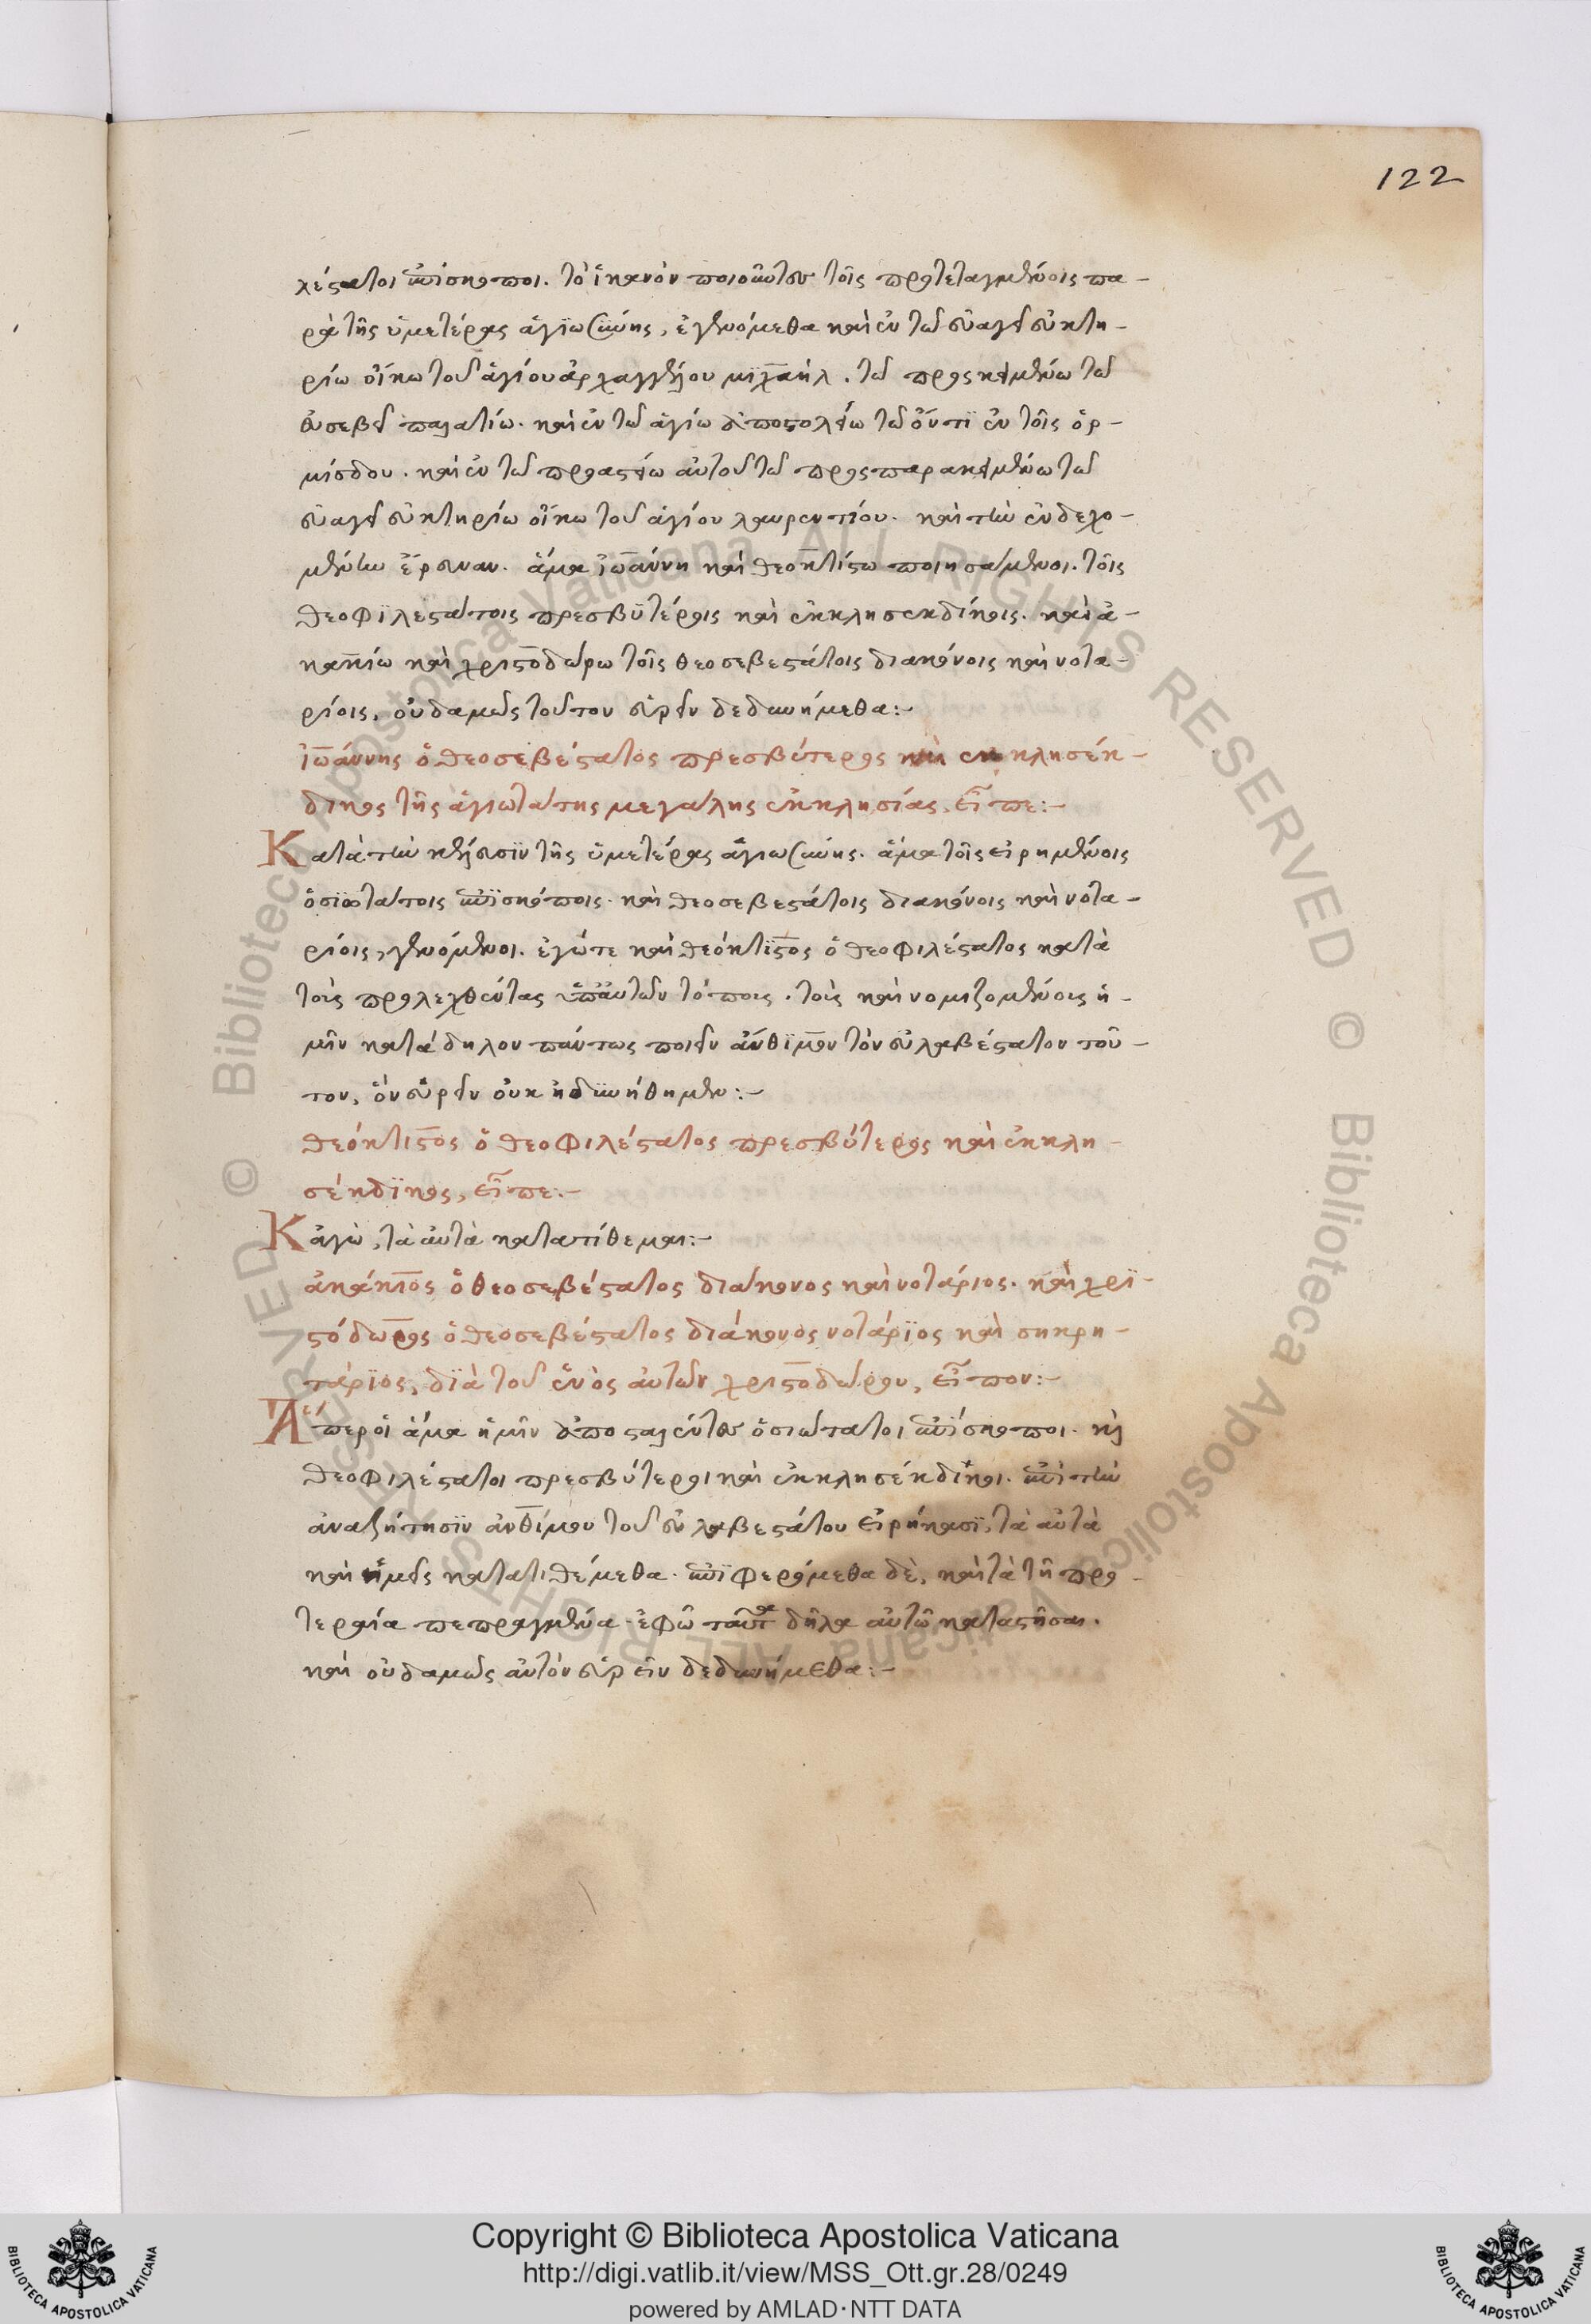 122
λέστατοι ἐπίσκοποι. τὸ ἱκανὸν ποιοῦντες τοῖς προτεταγμένοις πα-
ρὰ τῆς ὑμετέρας ἁγϊωσύνης, ἐγενόμεθα καὶ ἐν τῶ εὐαγεῖ εὐκτη-
ρίω οἴκω τοῦ ἁγίου ἀρχαγγέλου μϊχαήλ. τῶ προσκειμένω τῶ
εὐσεβεῖ παλατίω. καὶ ἐν τῶ ἁγίω ἀποστολείω τῶ ὄντϊ ἐν τοῖς ὁρ-
μίσδου. καὶ ἐν τῶ προαστείω αὐτοῦ τῶ προσπαρακειμένω τῶ
εὐαγεῖ εὐκτηρίω οἴκω τοῦ ἁγίου λαυρεντίου. καὶ τὴν ἐνδεχο-
μένην ἔρευναν. ἅμα ἰωάννη καὶ θεοκτίστω ποιησάμενοι. τοῖς
θεοφϊλεστάτοις πρεσβϋτέροις καὶ ἐκκλησεκδίκοις. καὶ ἀ-
κακίω καὶ χριστοδώρω τοῖς θεοσεβεστάτοις διακόνοις καὶ νοτα-
ρίοις, οὐδαμῶς τοῦτον εὑρεῖν δεδυνήμεθα:-
ἰωάννης ὁ θεοσεβέστατος πρεσβύτερος καὶ ἐκκλησέκ-
δικος τῆς ἁγιωτάτης μεγάλης ἐκκλησίας, εἶπε:-
Κατὰ τὴν κέλευσϊν τῆς ὑμετέρας ἁγιωσύνης. ἅμα τοῖς εἰρημένοις
ὁσϊωτάτοις ἐπϊσκόποις. καὶ θεοσεβεστάτοις διακόνοις καὶ νοτα-
ρίοις, γενόμενοι. ἐγώ τε καὶ θεόκτϊστος ὁ θεοφιλέστατος κατὰ
τοὺς προλεχθέντας ὑπ' αὐτῶν τόπους. τοὺς καὶ νομιζομένους ἡ-
μῖν κατάδηλον πάντως ποιεῖν ἄνθϊμον τὸν εὐλαβέστατον τοῦ-
τον, ὃν εὑρεῖν οὐκ ἠδϋνήθημεν:-
θεόκτιστος ὁ θεοφιλέστατος πρεσβύτερος καὶ ἐκκλη-
σέκδϊκος, εἶπε:-
Κἀγὼ, τὰ αὐτὰ κατατίθεμαι:-
ἀκάκιος ὁ θεοσεβέστατος διάκονος καὶ νοτάριος. καὶ χρϊ-
στόδωρος ὁ θεοσεβέστατος διάκονος νοτάρϊος καὶ σηκρη-
τάρϊος, δϊὰ τοῦ ἑνὸς αὐτῶν χριστοδώρου, εἶπον:-
Ἅπερ οἱ ἅμα ἡμῖν ἀποσταλέντες ὁσιώτατοι ἐπίσκοποι. καὶ
θεοφιλέστατοι πρεσβύτεροι καὶ ἐκκλησέκδικοι. ἐπὶ τὴν
ἀναζήτησϊν ἀνθίμου τοῦ εὐλαβεστάτου εἰρήκασϊ, τὰ αὐτὰ
καὶ ἡμεῖς κατατιθέμεθα. ἐπϊφερόμεθα δὲ, καὶ τὰ τῆ προ-
τεραία πεπραγμένα. ἐφῶ ταῦτα δῆλα αὐτῶ καταστῆσαι.
καὶ οὐδαμῶς αὐτὸν εὑρεῖν δεδυνήμεθα:-
Copyright © Biblioteca Apostolica Vaticana
http://digi.vatlib.it/view/MSS_Ott.gr.28/0249
powered by AMLAD·NTT DATA